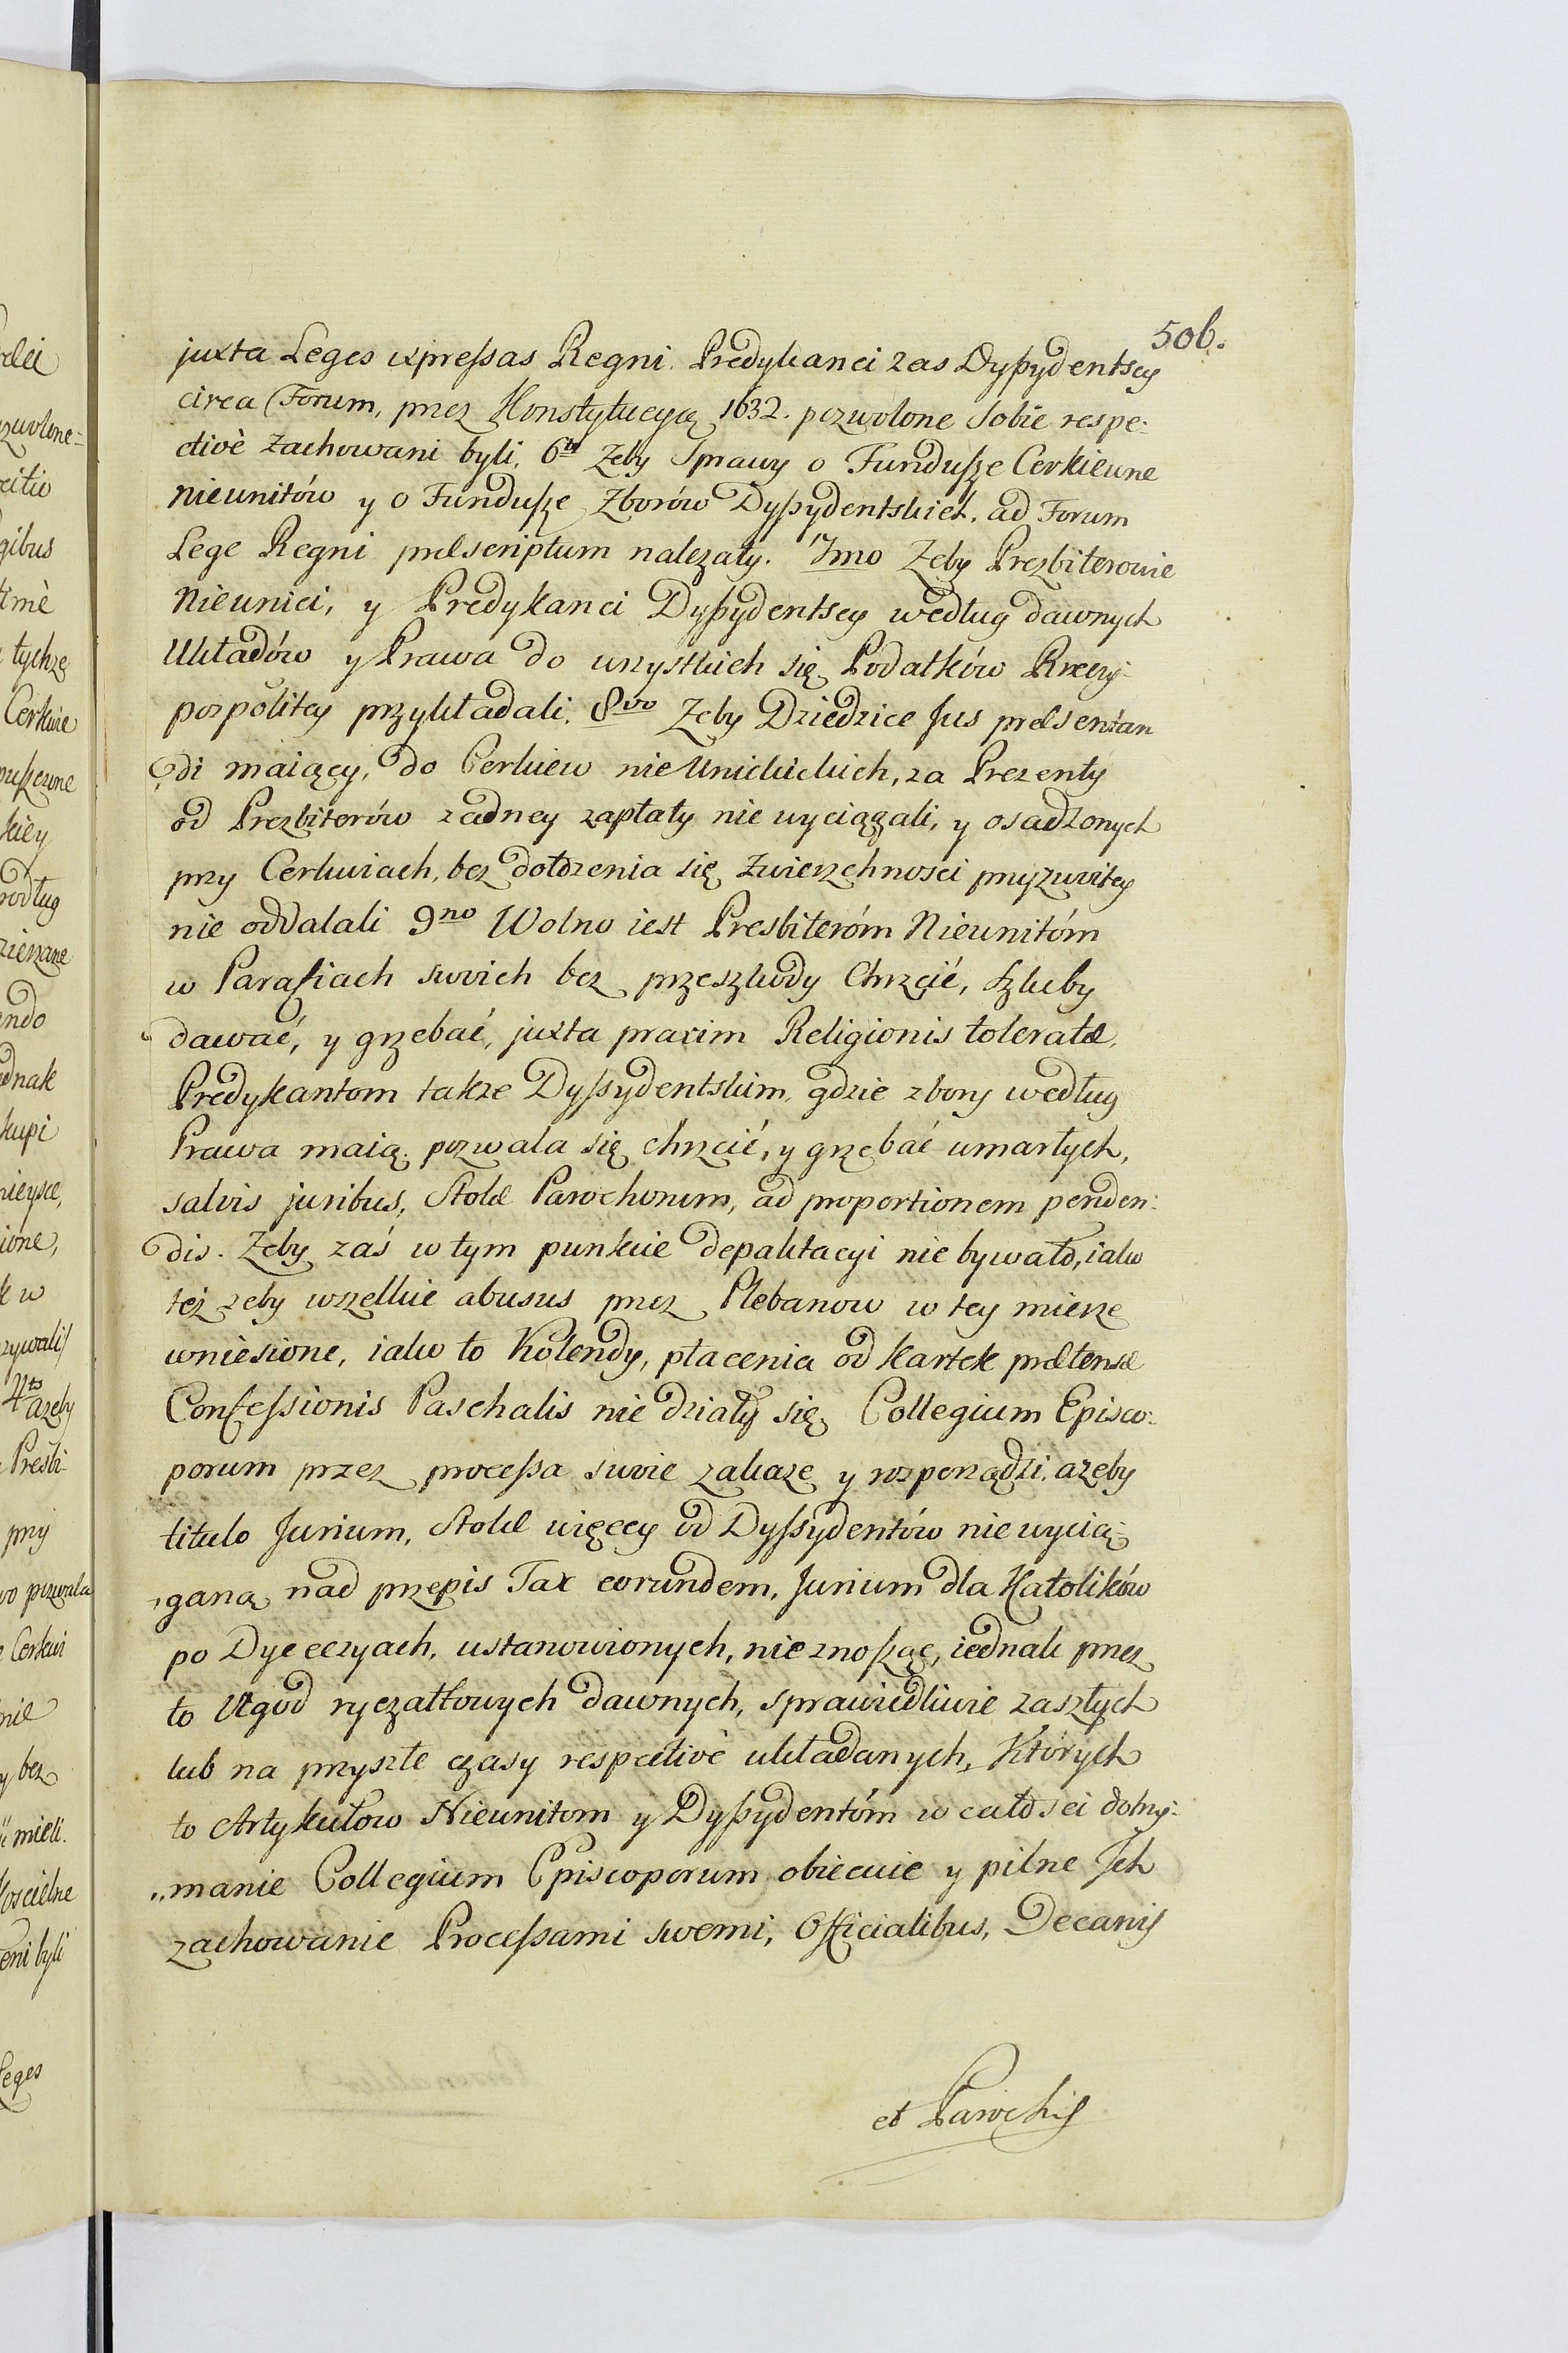 506.
juxta Leges expressas Regni. Predykanci zas Dyssydentscy
circa Forum, przez Konstytucyą 1632. pozwolone sobie respe-
ctivè zachowani byli, 6to Zeby Sprawy o Fundusze Cerkiewne
Nieunitów y o Fundusze Zborów Dyssydentskich, ad Forum
Lege Regni præscriptum nalezały. 7mo Zeby Prezbiterowie
Nieunici, y Predykanci Dyssydentscy według dawnych
Układów y Prawa do wszystkich się Podatków Rzeczy-
pospolitey przykładali. 8vo Zeby Dziedzice Jus præsentan
di maiący, do Cerkiew nie Unickickich, za Prezenty
od Prezbiterów zadney zapłaty nie wyciągali, y osadzonych
przy Cerkwiach, bez dołożenia się zwierzchnosci przyzwitey
nie oddalali 9no Wolno iest Presbiteróm Nieunitóm
w Parafiach swoich bez przeszkody Chrzcić, Szluby
dawać, y grzebać, juxta praxim Religionis toleratæ.
Predykantom takze Dyssydentskim, gdzie zbory według
Prawa maią, pozwala się chrzcić, y grzebać umarłych,
salvis juribus, Stolæ Parochorum, ad proportionem penden:
dis. Zeby zaś w tym punkcie depaktacyi nie bywało, iako
też zeby wszelkie abusus przez Plebanow w tey mierze
wniesione, iako to Kolendy, płacenia od kartek prætensæ
Confessionis Paschalis nie działy się Collegium Episco:
porum przez processa swoie zakaze y rozporządzi, azeby
titulo Jurium, Stolæ więcey od Dyssydentów nie wycią-
gano nad przepis Tax eorundem, Jurium dla Katolików
po Dyecezyach, ustanowionych, nie znosząc, iednak przez
to Ugod ryczałtowych dawnych, sprawiedliwie zaszłych
lub na przyszłe czasy respectivè układanych, Których
to Artykułow Nieunitom y Dyssydentóm w całości dotrzy-
„manie Collegium Episcoporum obiecuie y pilne Ich
zachowanie Processami swemi, Officialibus, Decanis
et Parochis